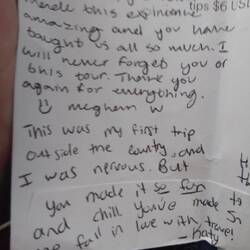 made this experience
tips $6 US
amazing and you have
taught us all so much. I
will never forget you or
this tour. Thank you
again for everything.
meghan W
This was my first trip
outside the country, and
I was nervous. But
you made it so fun
and chill you've made
fall in love with travel
- Katy